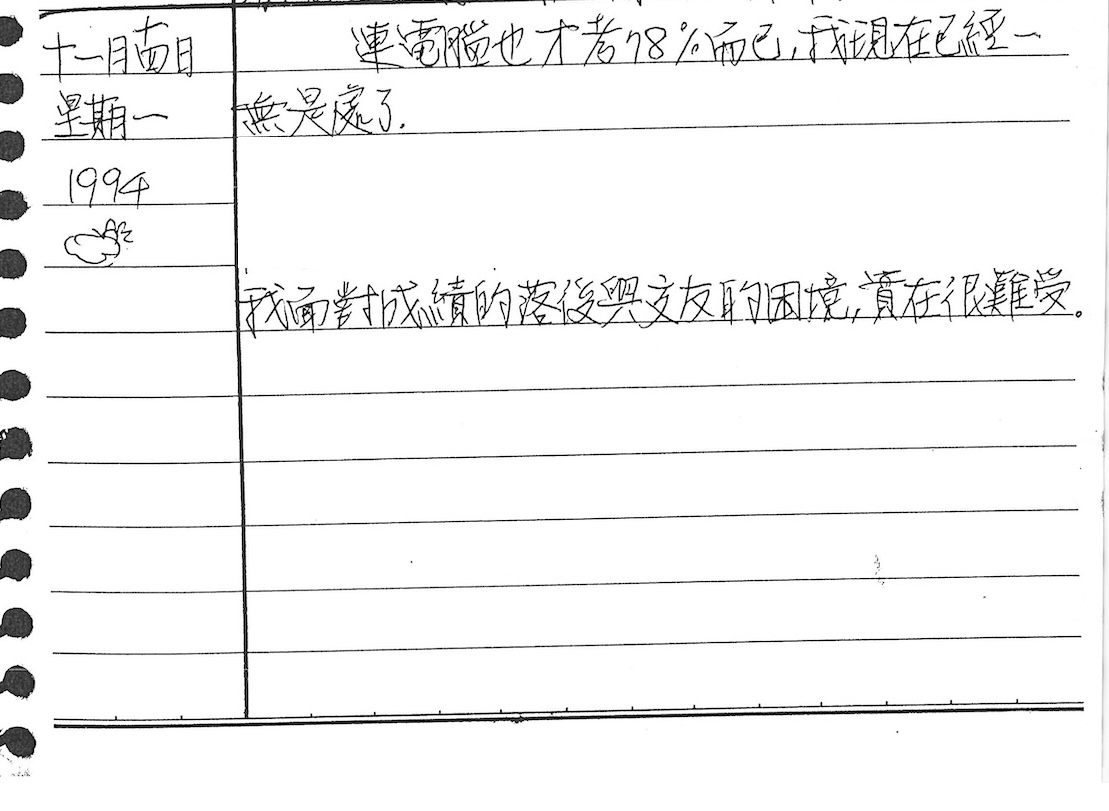 十一月十四日
星期一
1994
連電腦也才考78%而已,我現在已經一
無是處了.
我面對成績的落後與交友的困境,實在很難受。